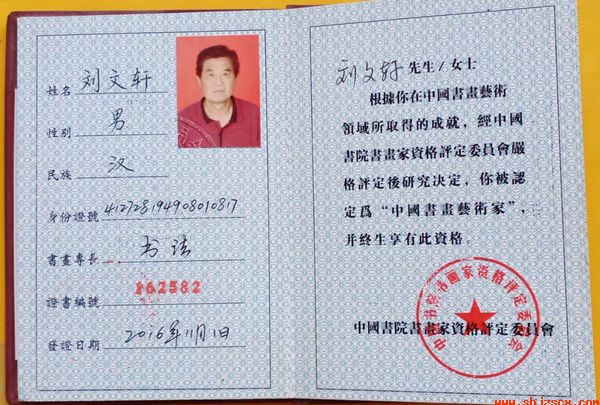 姓名 刘文轩
性别 男
民族 汉
身份證號 412728194908010817
書畫專長 书法
證書編號 162582
發證日期 2016年11月1日
刘文轩 先生/女士
根據你在中國書畫藝術
領域所取得的成就，經中國
書院書畫家資格評定委員會嚴
格評定後研究決定，你被認
定爲“中國書畫藝術家”，
并終生享有此資格。
中国书院书画家资格评定委员会
中國書院書畫家資格評定委員會
www.shjzscx.com